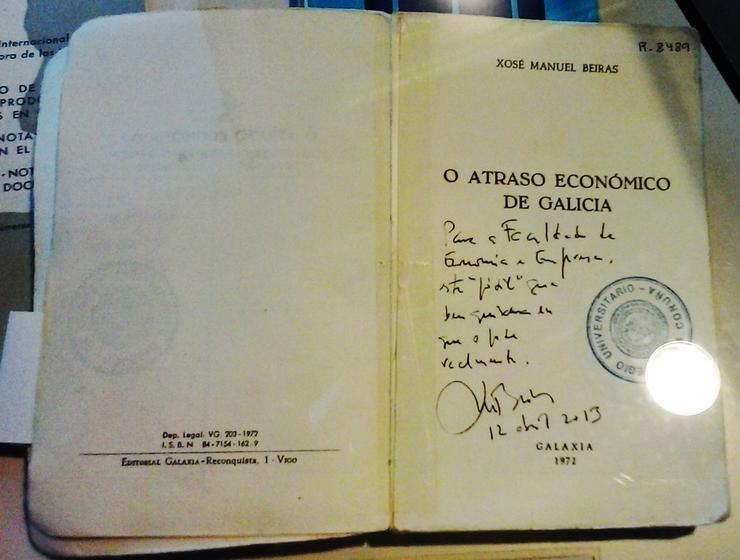 nternacional
ora de las
O DE
PROD
S EN
NOTA
N EL
-NOT
DOC
Dep. Legal: VG. 203-1972
I. S. B. N 84-7154-162-9
EDITORIAL GALAXIA-Reconquista, 1 - VIGO
R. 8489
XOSÉ MANUEL BEIRAS
O ATRASO ECONÓMICO
DE GALICIA
Para a Facultade de
Economía e Empresa,
este "fósil" que
ben quixera eu
que o fose
realmente.
12 abril 2013
COLEGIO UNIVERSITARIO - CORUÑA
GALAXIA
1972